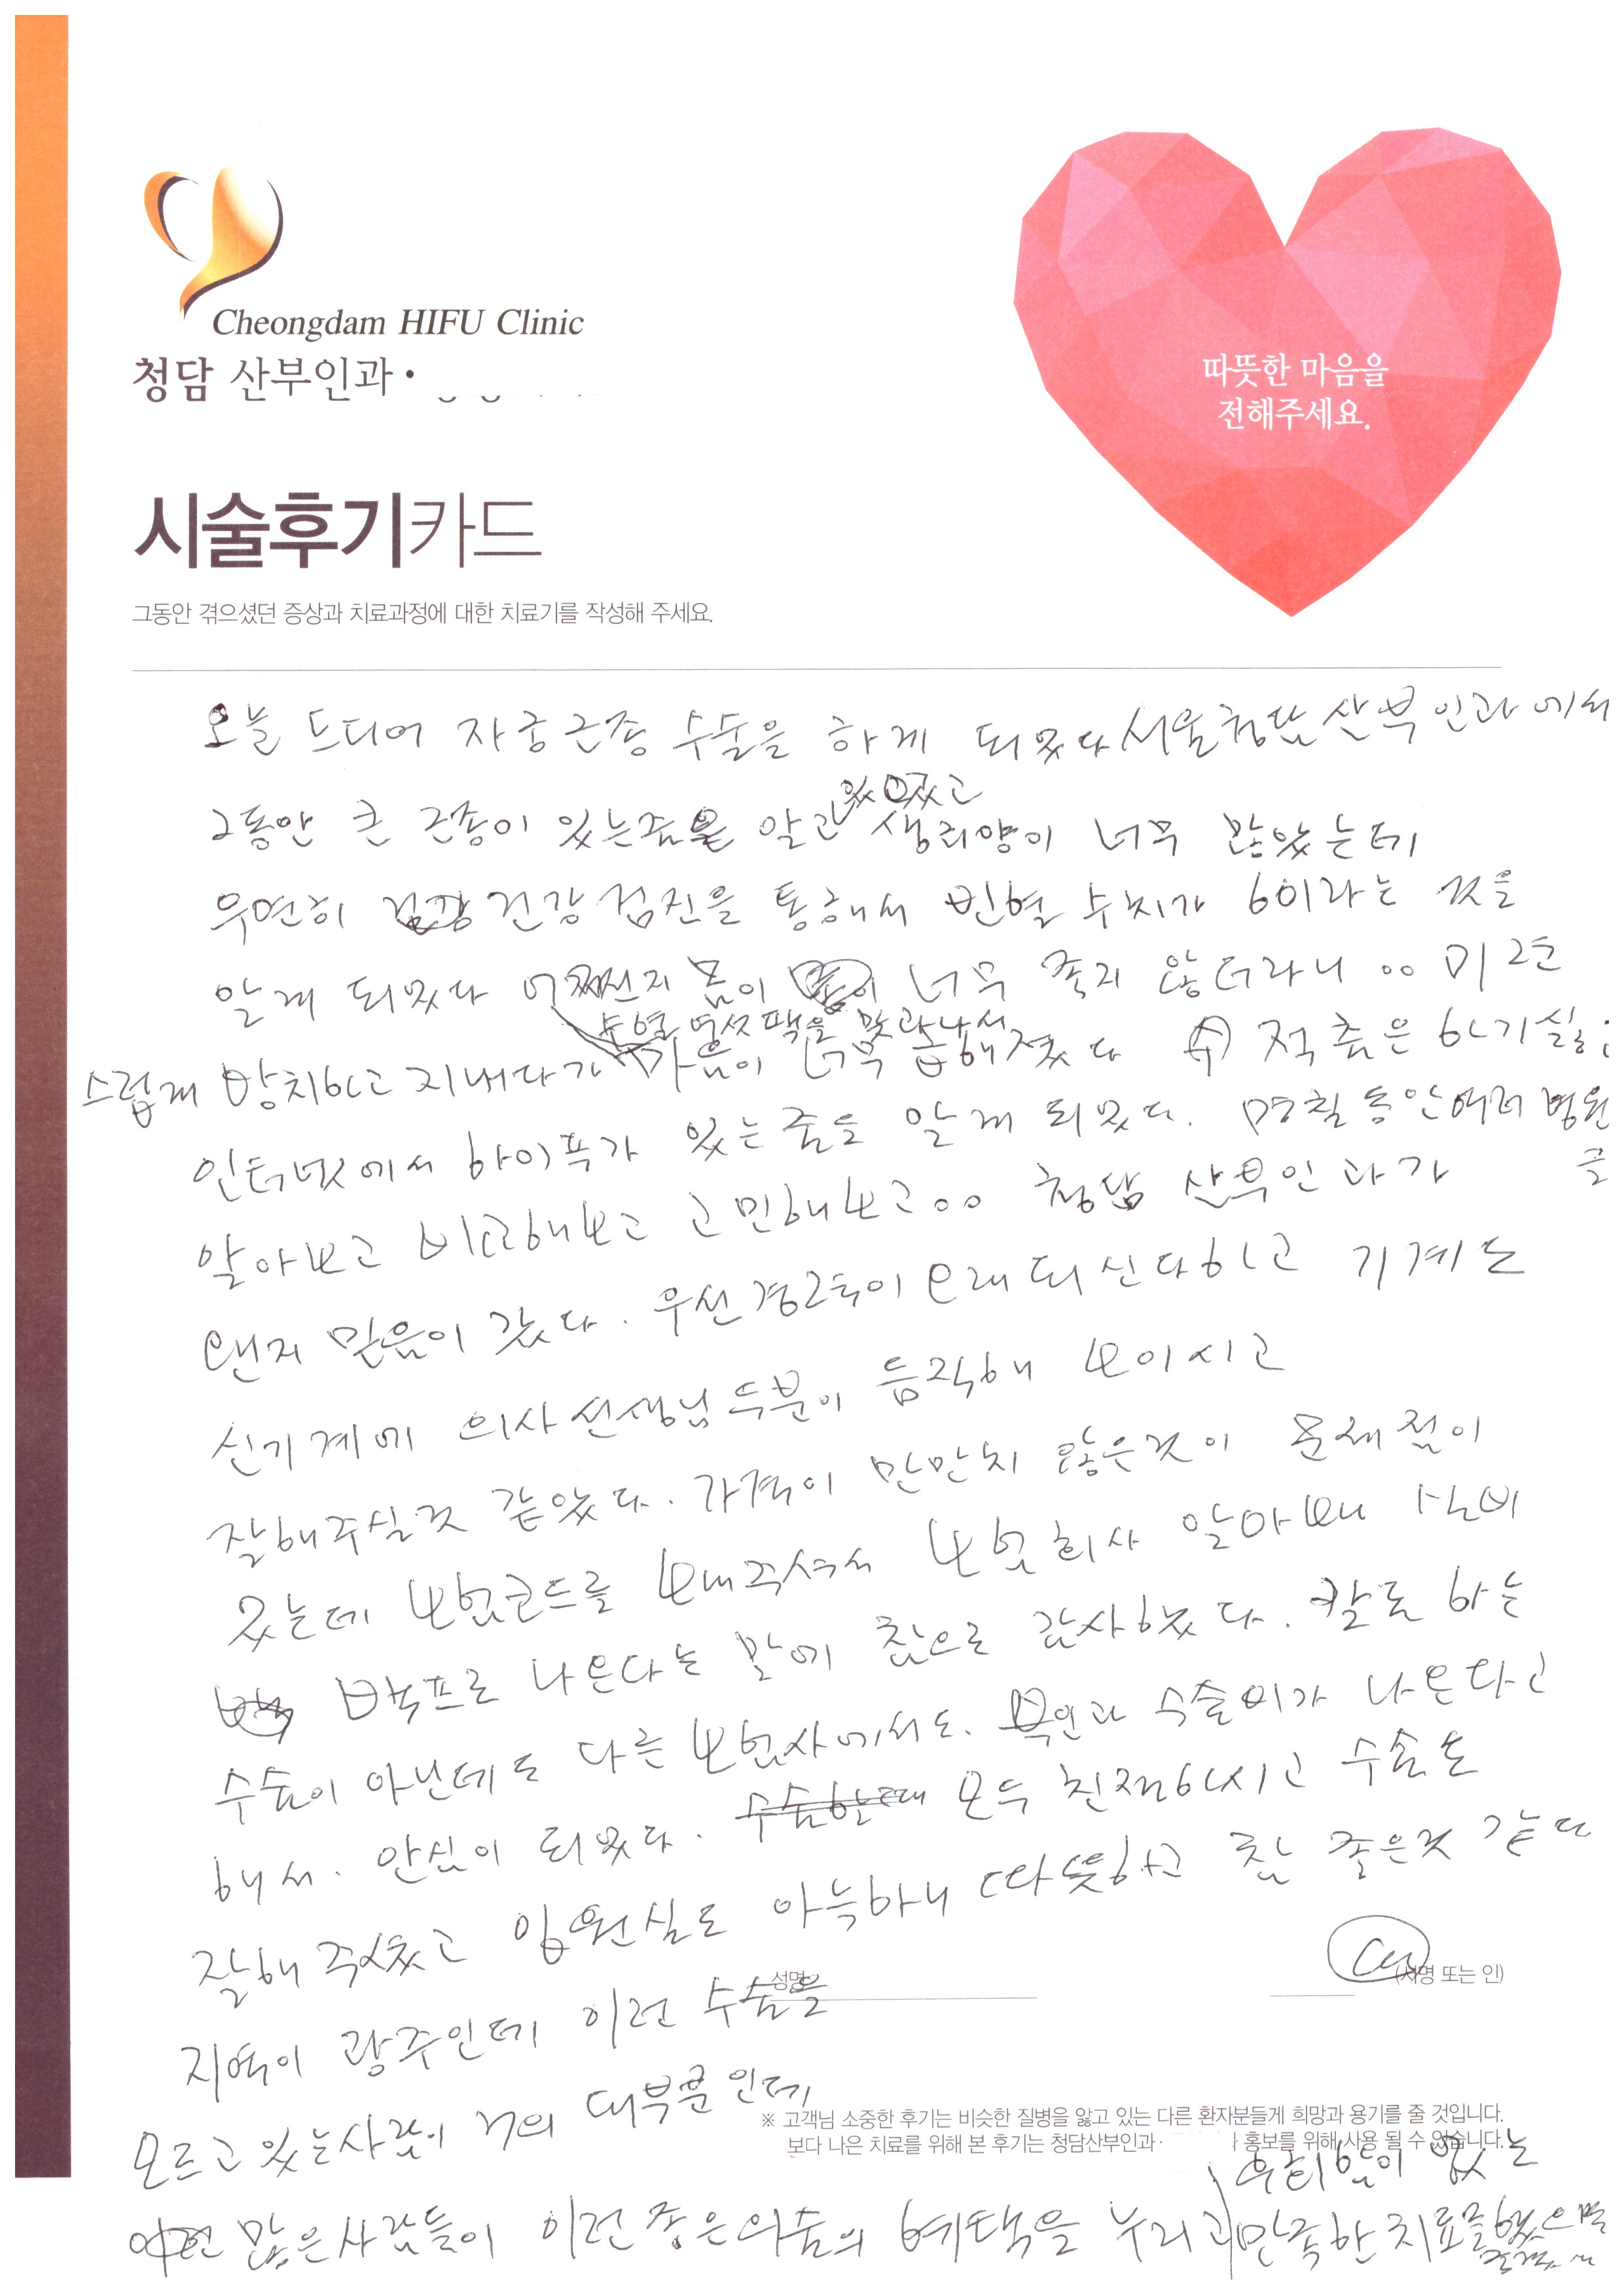 Cheongdam HIFU Clinic
청담 산부인과·
따뜻한 마음을
전해주세요.
시술후기카드
그동안 겪으셨던 증상과 치료과정에 대한 치료기를 작성해 주세요.
오늘 드디어 자궁근종 수술을 하게 되었다 서울청담산부인과에서
그동안 큰 근종이 있는줄을 알고 있었고 생리양이 너무 많았는데
우연히 건강검진을 통해서 빈혈 수치가 6이라는 것을
알게 되었다 어쩐지 몸이 너무 좋지 않더라니 .. 미련
수혈 여섯팩을 맞고나서
스럽게 방치하고 지내다가 마음이 너무 급해졌다 적출은 하기싫고
인터넷에서 하이푸가 있는줄을 알게 되었다. 며칠동안 여러 병원을
알아보고 비교해보고 고민해보고.. 청담 산부인과가
왠지 믿음이 갔다. 우선 경력이 오래되신다하고 기계도
신기계에 의사선생님 두분이 듬직해 보이시고
잘해주실것 같았다. 가격이 만만치 않은것이 문제점이
였는데 보험코드를 보내주셔서 보험회사 알아보니 실비
백프로 나온다는 말에 참으로 감사했다. 칼로 하는
수술이 아닌데도 다른 보험사에서도. 부인과 수술비가 나온다고
해서. 안심이 되었다. 모두 친절하시고 수술도
잘해주셨고 입원실도 아늑하니 따뜻하고 참 좋은것 같다
성명
(서명 또는 인)
지역이 광주인데 이런 수술을
모르고 있는사람이 거의 대부분인데
※ 고객님 소중한 후기는 비슷한 질병을 앓고 있는 다른 환자분들게 희망과 용기를 줄 것입니다.
보다 나은 치료를 위해 본 후기는 청담산부인과· 홍보를 위해 사용 될 수 있습니다.
후회없이 없는
많은사람들이 이런 좋은의술의 혜택을 누리고 만족한치료를했으면
좋겠다